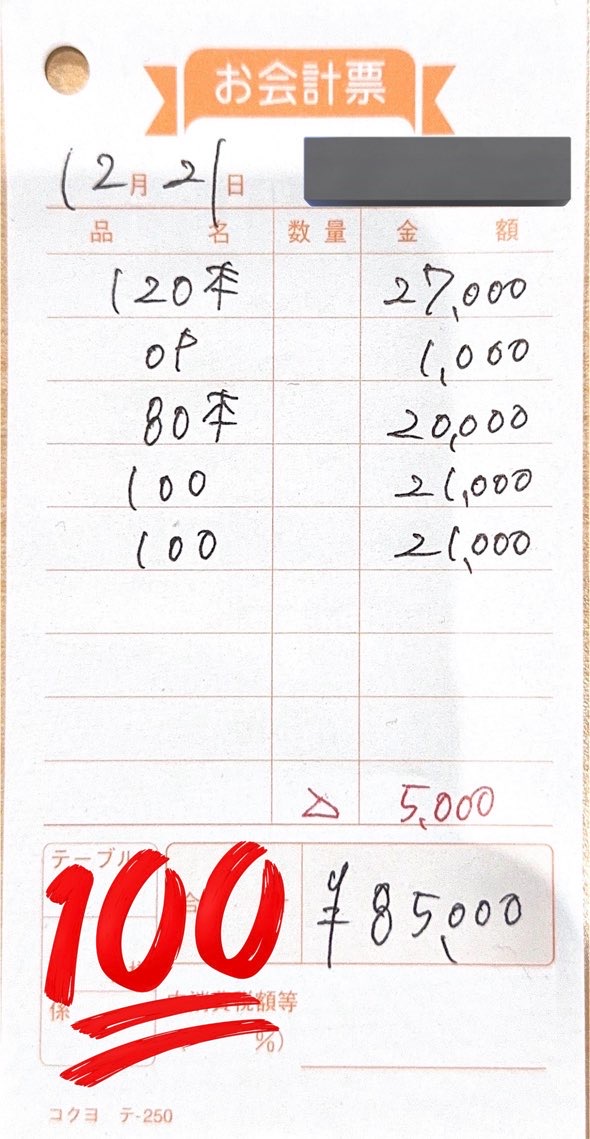 お会計票
12月21日
品名 数量 金額
120本 27,000
OP 1,000
80本 20,000
100 21,000
100 21,000
△ 5,000
テーブル
100
合 ¥85,000
係
消費税額等
%)
コクヨ テ-250